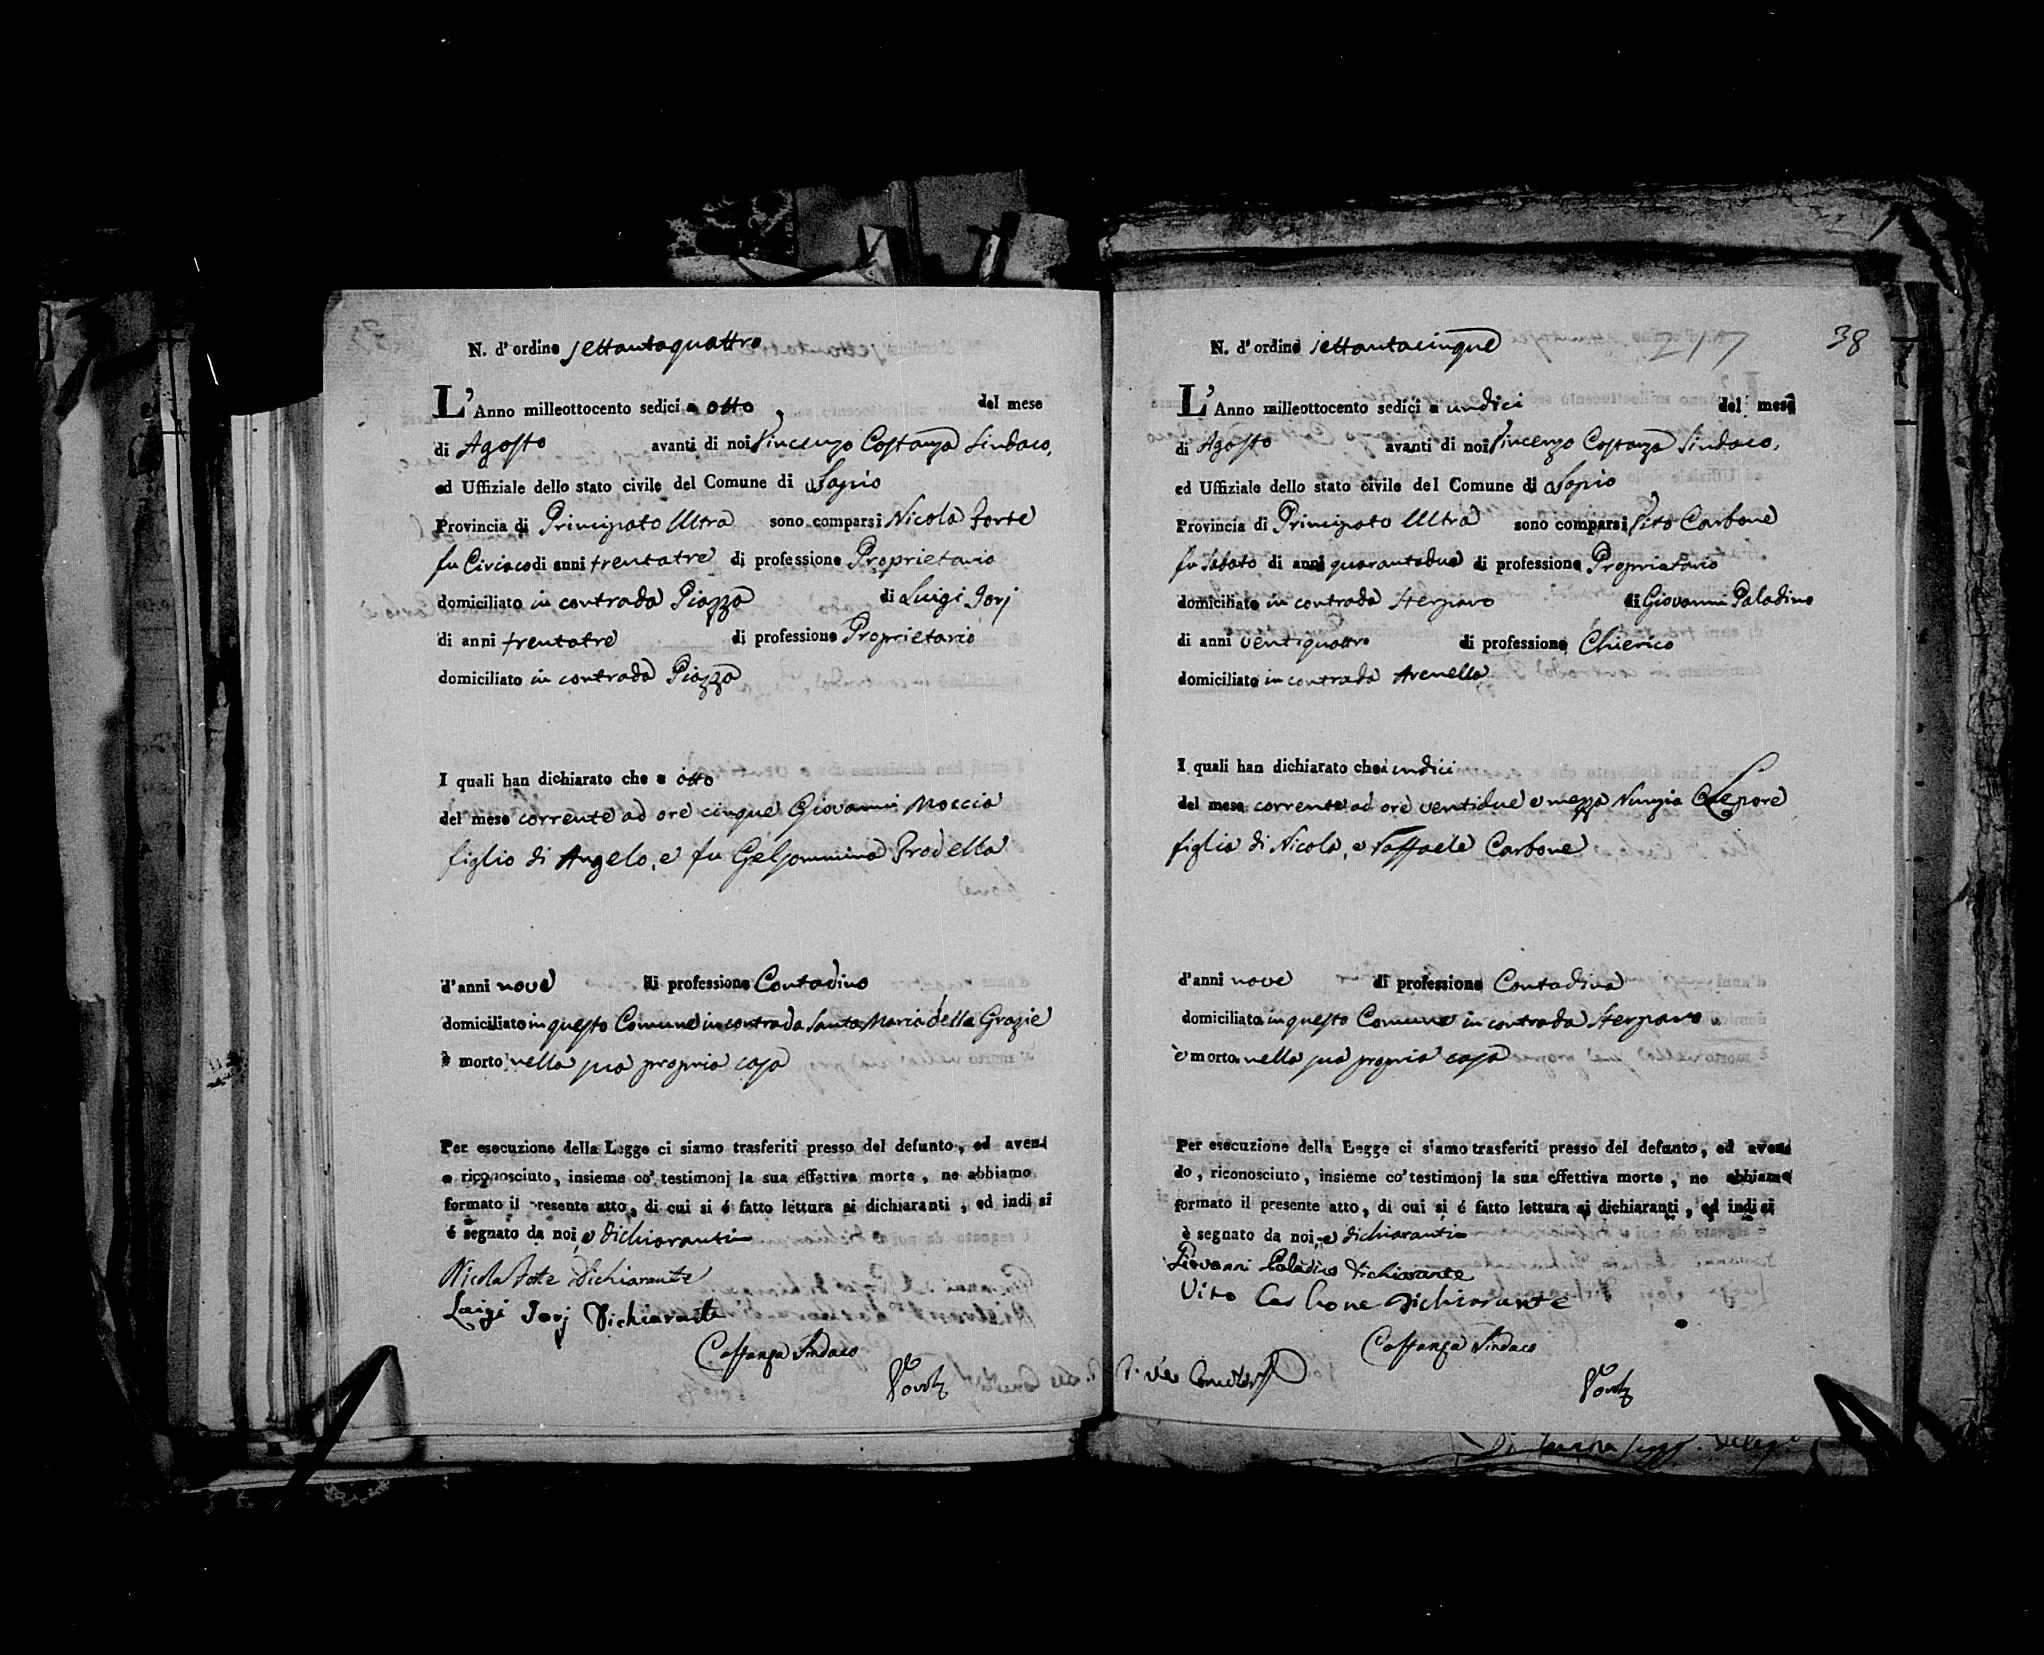 N. d' ordine settantaquattro
L' Anno milleottocento sedici a otto del mese
di Agosto avanti di noi Vincenzo Costanza Sindaco,
ed Uffiziale dello stato civile del Comune di Lapio
Provincia di Principato Ultra sono comparsi Nicola Forte
fu Ciriaco di anni trentatre di professione Proprietario
domiciliato in contrada Piazza di Luigi Iorj
di anni trentatre di professione Proprietario
domiciliato in contrada Piazza
I quali han dichiarato che a otto
del mese corrente ad ore cinque Giovanni Moccia
figlio di Angelo, e fu Gelsommina Prodella
d'anni nove di professione Contadino
domiciliato in questo Comune in contrada Santa Maria della Grazie
è morto nella sua propria casa
Per esecuzione della Legge ci siamo trasferiti presso del defunto, ed aven
o riconosciuto, insieme co' testimonj la sua effettiva morte, ne abbiamo
formato il presente atto, di cui si é fatto lettura ai dichiaranti, ed indi si
é segnato da noi, e dichiaranti
Nicola Forte Dichiarante
Luigi Iorj Dichiarante
Costanza Sindaco
38
N. d' ordine settantacinque
L' Anno milleottocento sedici a undici del mese
di Agosto avanti di noi Vincenzo Costanza Sindaco,
ed Uffiziale dello stato civile del Comune di Lapio
Provincia di Principato Ultra sono comparsi Vito Carbone
fu Sabato di anni quarantadue di professione Proprietario
domiciliato in contrada Sterparo di Giovanni Paladino
di anni ventiquattro di professione Chierico
domiciliato in contrada Arenella
I quali han dichiarato che a undici
del mese corrente ad ore ventidue e mezza Nunzia Lepore
figlia di Nicola, e Raffaela Carbone
d'anni nove di professione Contadina
domiciliata in questo Comune in contrada Sterparo
è morta nella sua propria casa
Per esecuzione della Legge ci siamo trasferiti presso del defunto, ed aven
do, riconosciuto, insieme co' testimonj la sua effettiva morte, ne abbiamo
formato il presente atto, di cui si é fatto lettura ai dichiaranti, ed indi si
è segnato da noi, e dichiaranti
Giovanni Paladino Dichiarante
Vito Carbone Dichiarante
Costanza Sindaco